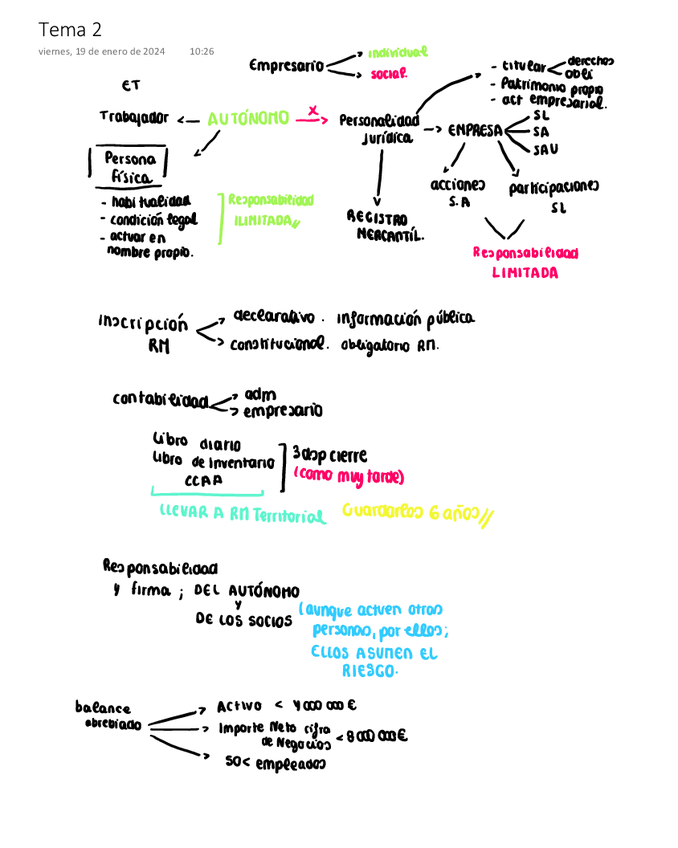 Tema 2
viernes, 19 de enero de 2024 10:26
Empresario
individual
social.
- titular
derechos
obli
- Patrimonio propio
- act empresarial.
ET
Trabajador <-- AUTÓNOMO x Personalidad
Jurídica -> EMPRESA
SL
SA
SAU
Persona
física
- habitualidad
- condición legal
- actuar en
nombre propio.
Responsabilidad
ILIMITADA//
REGISTRO
MERCANTÍL.
acciones
S.A
participaciones
SL
Responsabilidad
LIMITADA
Inscripción
RM
declarativo. información pública
constitucional. obligatorio RM.
contabilidad
adm
empresario
Libro diario
Libro de Inventario
CCAA
3 dsp cierre
(como muy tarde)
LLEVAR A RM Territorial
Guardarlos 6 años//
Responsabilidad
y firma ; DEL AUTÓNOMO
y
DE LOS SOCIOS
(aunque actuen otras
personas, por ellos;
ELLOS ASUMEN EL
RIESGO.
balance
abreviado
Activo < 4000 000 €
Importe Neto cifra
de Negocios < 8 000 000€
50< empleados